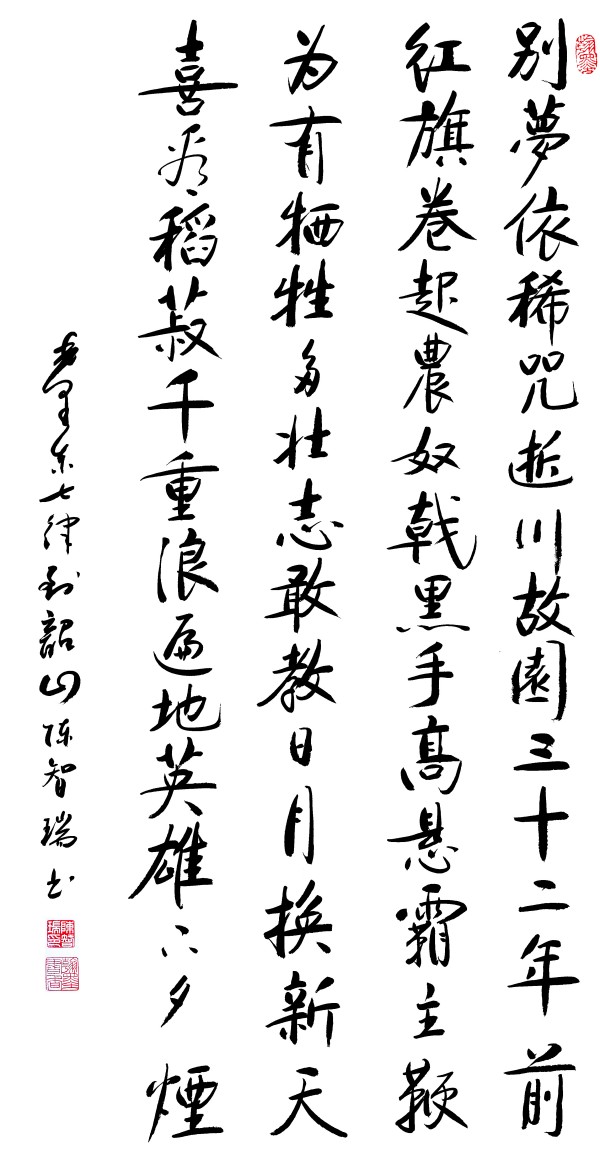 别夢依稀咒逝川故園三十二年前
红旗卷起農奴戟黑手高悬霸主鞭
为有牺牲多壮志敢教日月换新天
喜看稻菽千重浪遍地英雄下夕煙
毛泽东七律到韶山陈智瑞书
陳智瑞印